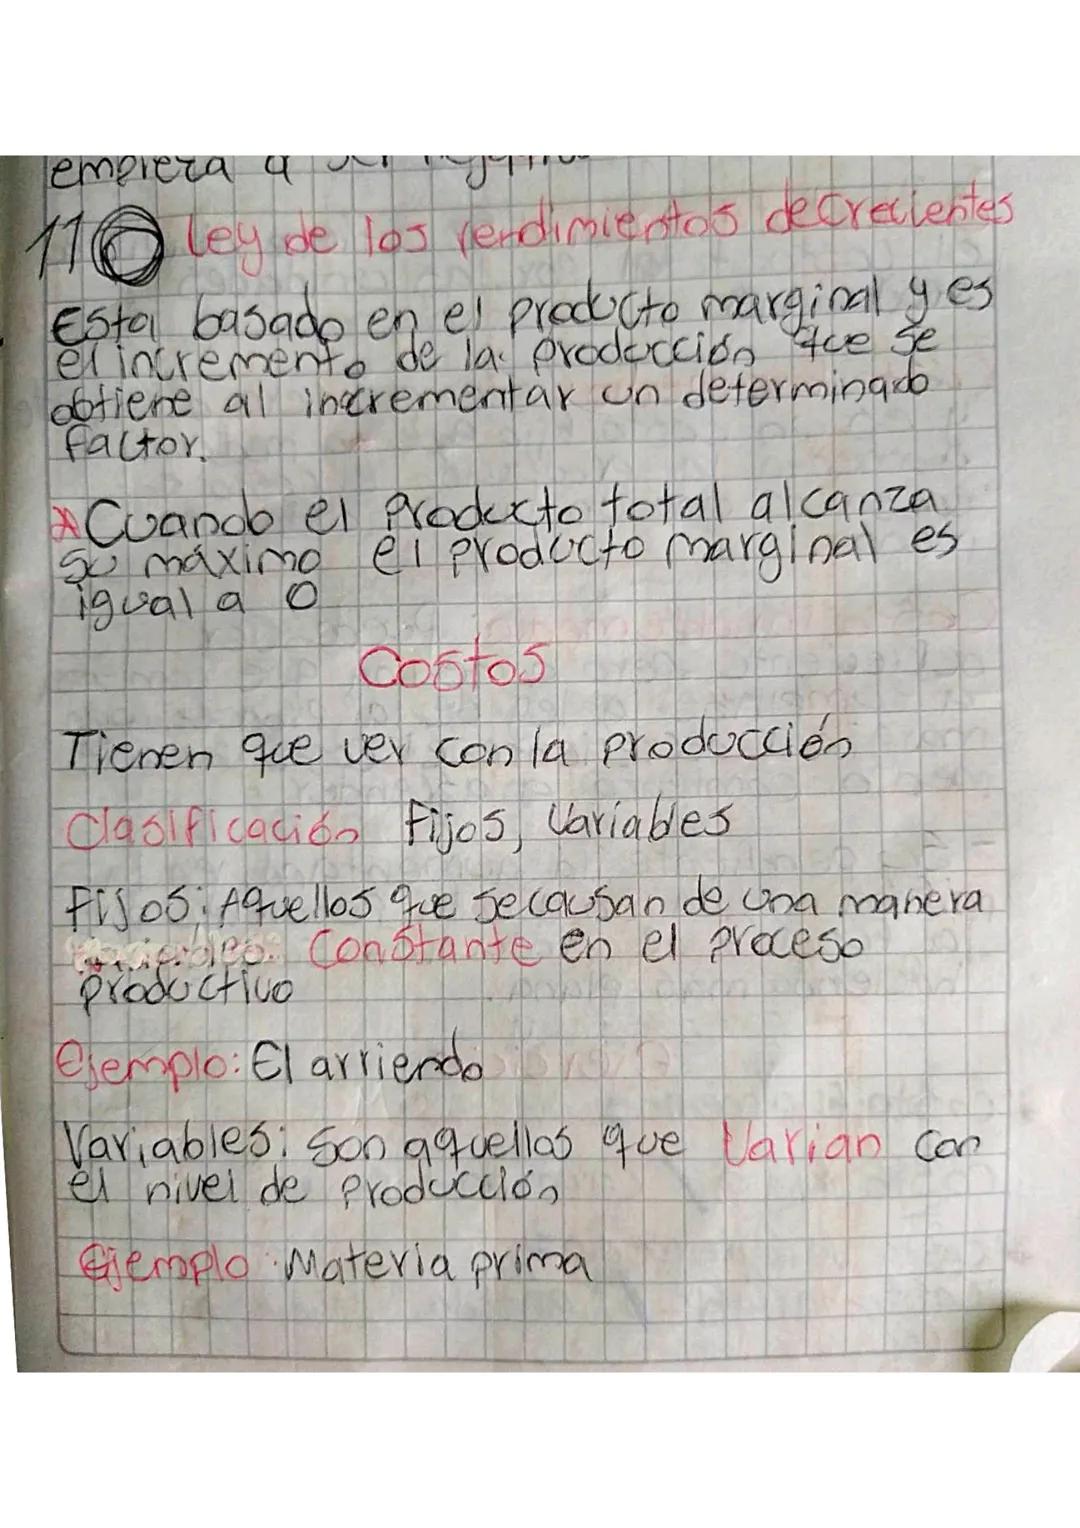 empieza a ser
11 Ley de los rendimientos decrecientes
Esta basado en el producto marginal y es
el incremento de la producción que se
obtiene al incrementar un determinado
factor.
*Cuando el Producto total alcanza
su máximo el producto marginal es
igual a 0
Costos
Tienen que ver con la producción
Clasificación Fijos, Variables
Fijos: Aquellos que se causan de una manera
Constante en el proceso
productivo
Ejemplo: El arriendo
Variables: Son aquellos que Varian con
el nivel de producción
Ejemplo: Materia prima